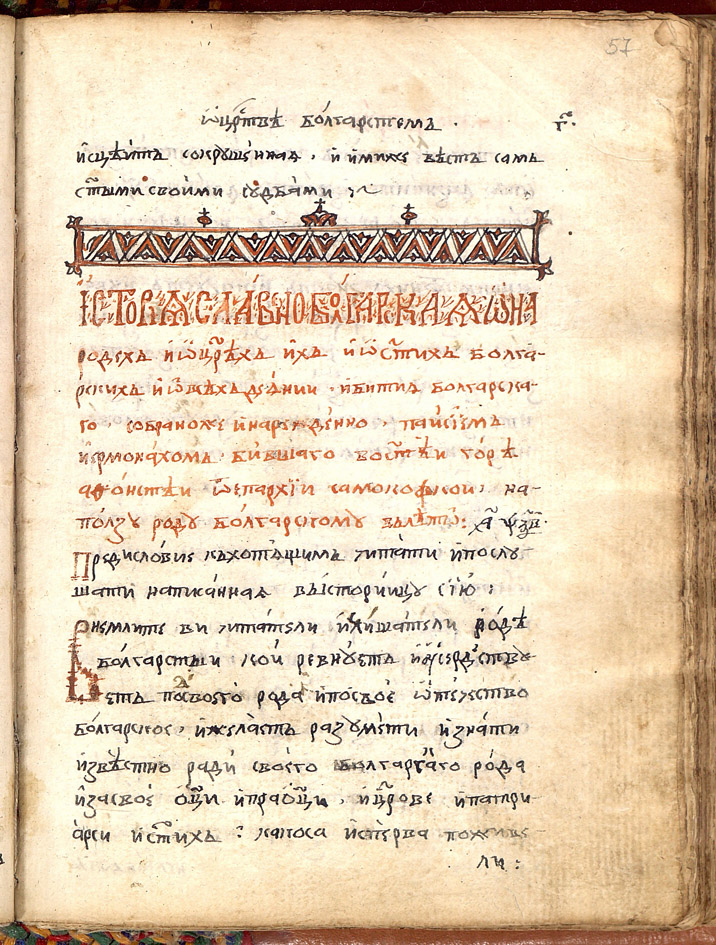 57
ѡ҆ црⷭ҇твѣ болгарстемъ ·
г҃·
исцѣитъ сокрꙋшеннаѧ , и имиже вѣстъ самъ
ст҃ыми своими сꙋдбами :~
ІСТОРІѦ СЛАВѢНОБОЛГАРСКАѦ Ѡ НА
родехъ и ѡ црⷭ҇ѣхъ ихъ и ѡ ст҃ихъ болга-
рскихъ и ѡ всѣхъ деѧнии , и битиѧ болгарска-
го , собранože и нареждеnно , паисіемъ
иермонахомъ , бившаго во ст҃ѣи горѣ
аѳонстѣи ѿ епархїи самоковскои , на
ползꙋ родꙋ болгарскомꙋ въ лѣто : ҂аѱ
Предисловие къ хотѧщимъ читати и послꙋ
шати написаннаѧ в истори ицꙋ сїю :
Внемлите ви читатели и слишатели роде
болгарстыи , кои ревнꙋетъ и ꙋсердствꙋ
етъ по своего рода и по свое ѡтечество
болгарское , и желаетъ разꙋмети и знати
извѣстно ради своего болгарⷭ҇каго рода
и за свое ѡц҃и и праѡц҃и , и црⷭ҇ове и патри
арси и ст҃ихъ ? како са исперва поживе-
ли :